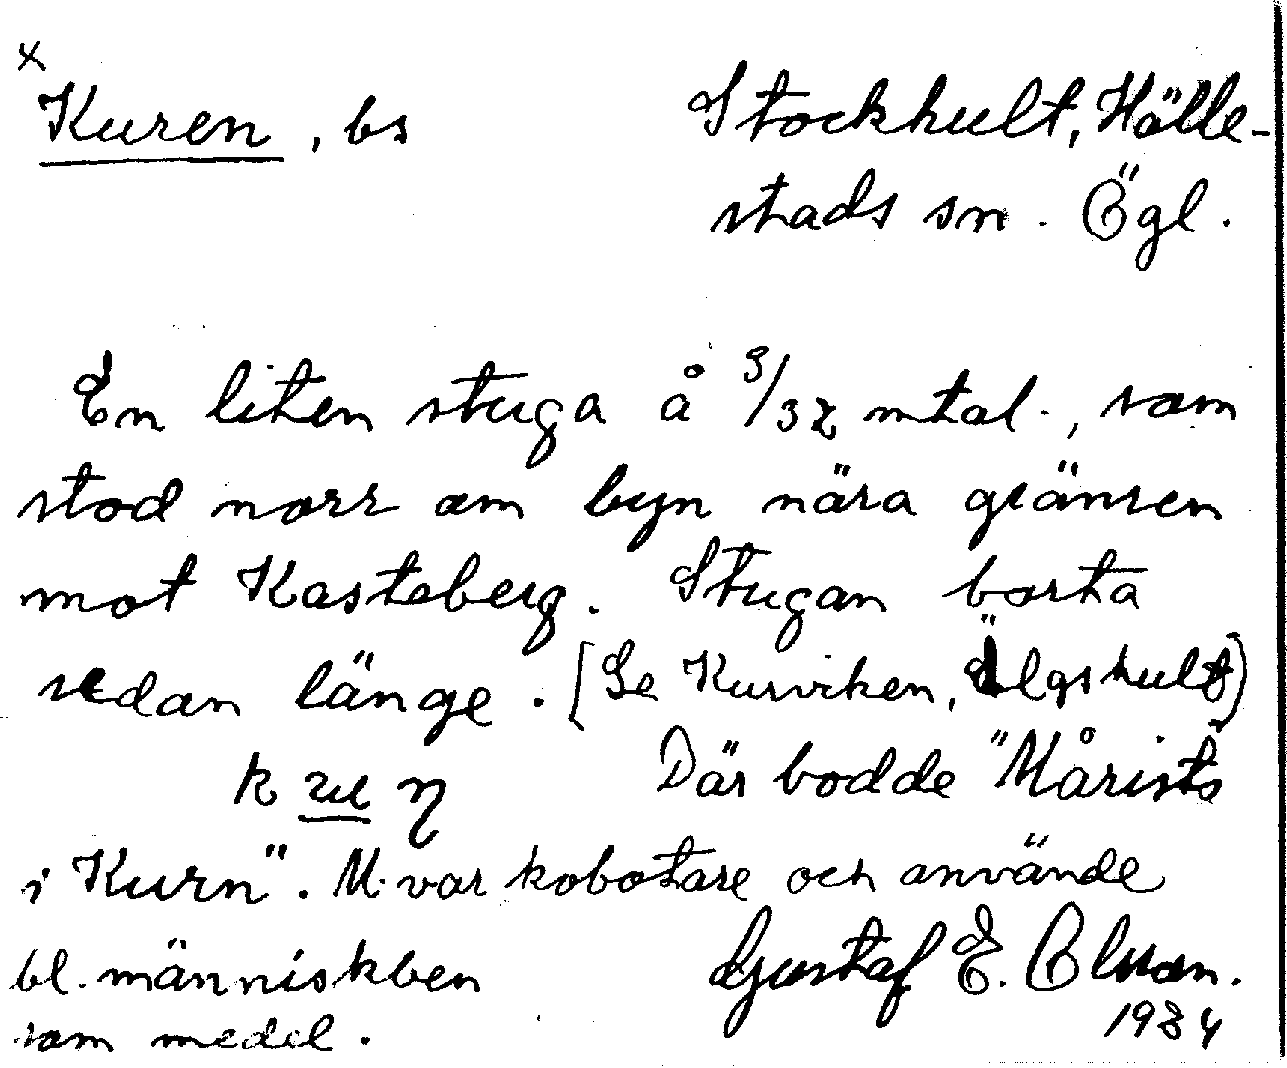 x
Kuren, bs Stockhult, Hälle-
stads sn. Ögl.
En liten stuga å 3/32 mtal., som
stod norr om byn nära gränsen
mot Kasteberg. Stugan borta
sedan länge. [Se Kurviken, Älgshult)
Där bodde "Mårists
i Kurn". M. var kobotare och använde
bl. människben Gustaf E. Olsson.
som medel. 1934